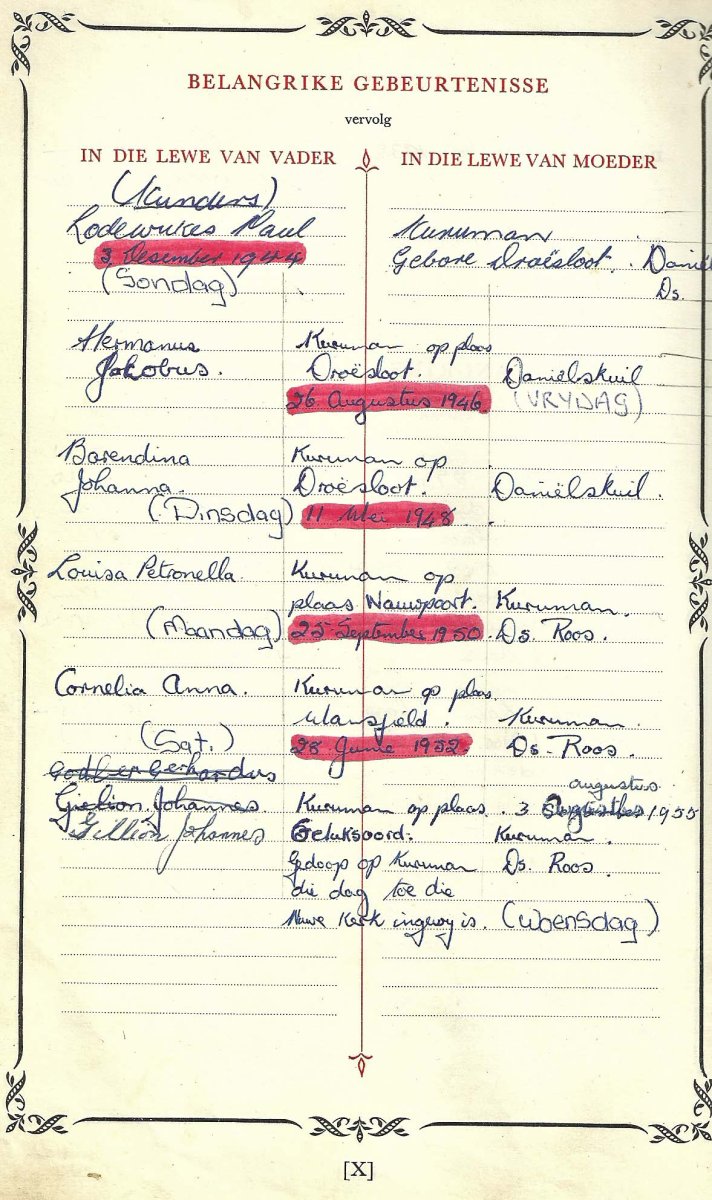 BELANGRIKE GEBEURTENISSE
vervolg
IN DIE LEWE VAN VADER IN DIE LEWE VAN MOEDER
(Kinders)
Lodewikes Paul Kuruman
3 Desember 1944 Gebore Droësloot. Daniël
(Sondag) Ds.
Hermanus Kuruman op plaas
Jakobus. Droësloot. Daniëlskuil
26 Augustus 1946 (VRYDAG)
Barendina Kuruman op
Johanna. Droësloot. Daniëlskuil.
(Dinsdag) 11 Mei 1948
Louisa Petronella. Kuruman op
plaas Nauwpoort. Kuruman.
(Maandag) 25 September 1950 Ds. Roos.
Cornelia Anna. Kuruman op plaas
Mansfield. Kuruman.
(Sat.) 28 Junie 1952. Ds. Roos.
Gerhardus
augustus
Gielion Johannes Kuruman op plaas. 3 Augustus 1955
Gillion Johannes Geluksoord. Kuruman.
Gedoop op Kuruman Ds. Roos.
die dag toe die
Nuwe Kerk ingewy is. (Woensdag)
[X]